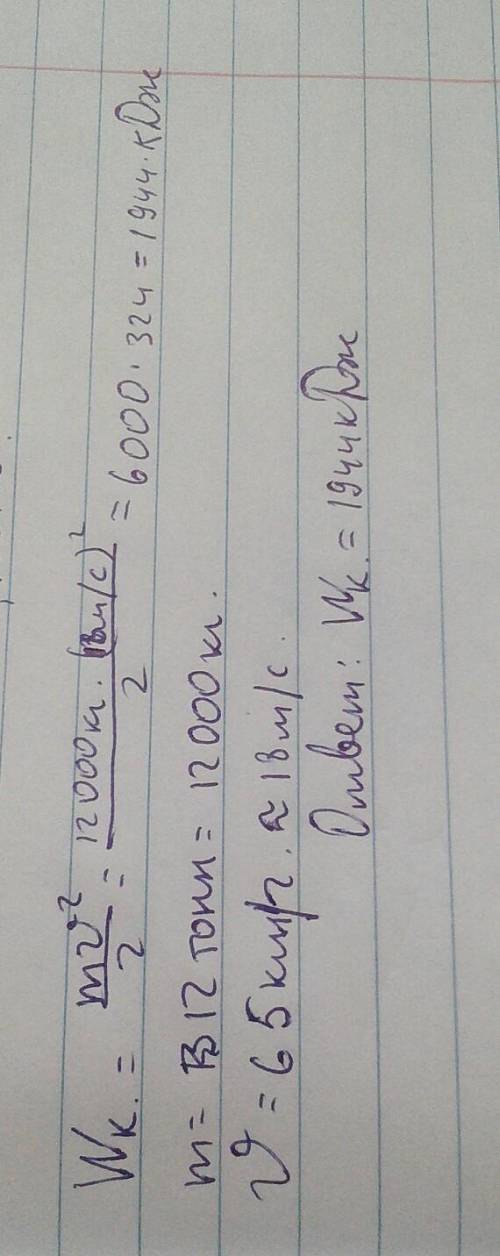 Wк. = mv²/2 = 12000кг · (18м/с)²/2 = 6000 · 324 = 1944 · кДж
m = 12 тонн = 12000кг.
v = 65км/ч. ≈ 18м/с.
Ответ: Wк. = 1944кДж